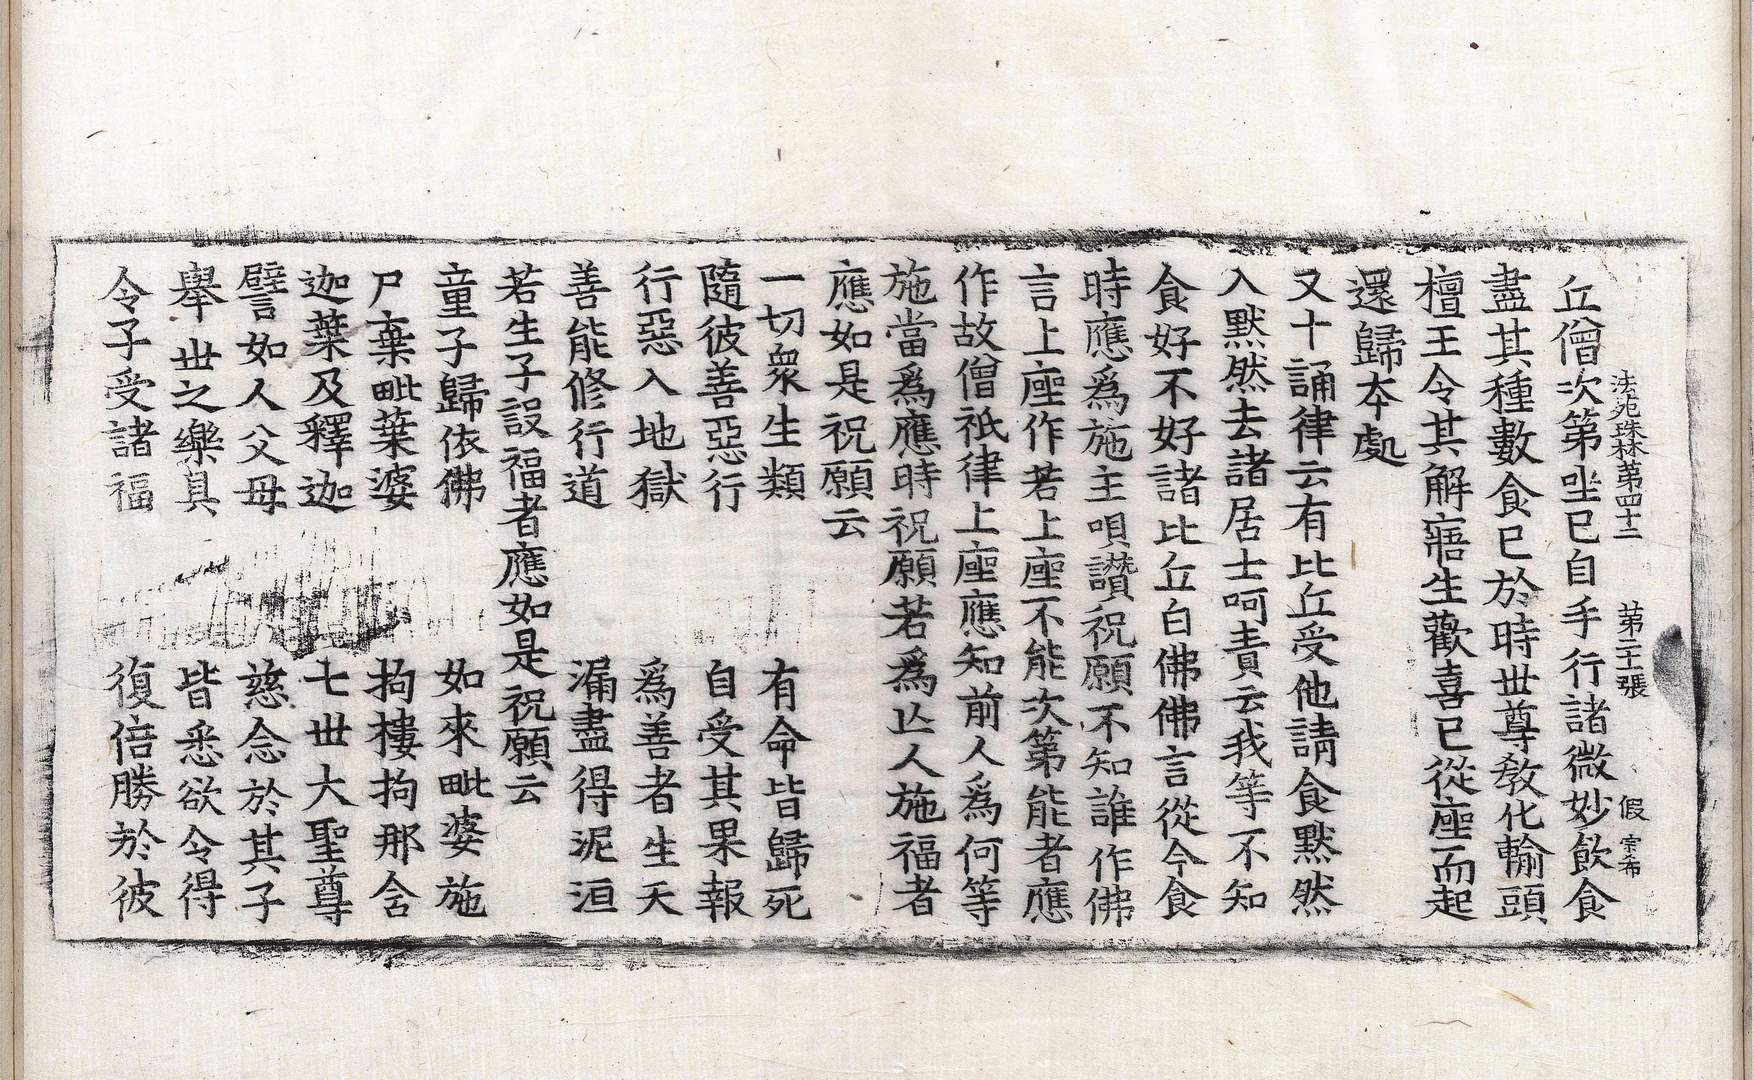 法苑珠林第四十二 第二十張 假 宗希
丘僧次第坐已自手行諸微妙飮食
盡其種數食已於時世尊教化輸頭
檀王令其解寤生歡喜已從座而起
還歸本處
又十誦律云有比丘受他請食默然
入默然去諸居士呵責云我等不知
食好不好諸比丘白佛佛言從今食
時應爲施主唄讚祝願不知誰作佛
言上座作若上座不能次第能者應
作故僧祇律上座應知前人爲何等
施當爲應時祝願若爲亡人施福者
應如是祝願云
一切衆生類 有命皆歸死
隨彼善惡行 自受其果報
行惡入地獄 爲善者生天
善能修行道 漏盡得泥洹
若生子設福者應如是祝願云
童子歸依佛 如來毗婆施
尸棄毗葉婆 拘樓拘那含
迦葉及釋迦 七世大聖尊
譬如人父母 慈念於其子
擧世之樂具 皆悉欲令得
令子受諸福 復倍勝於彼